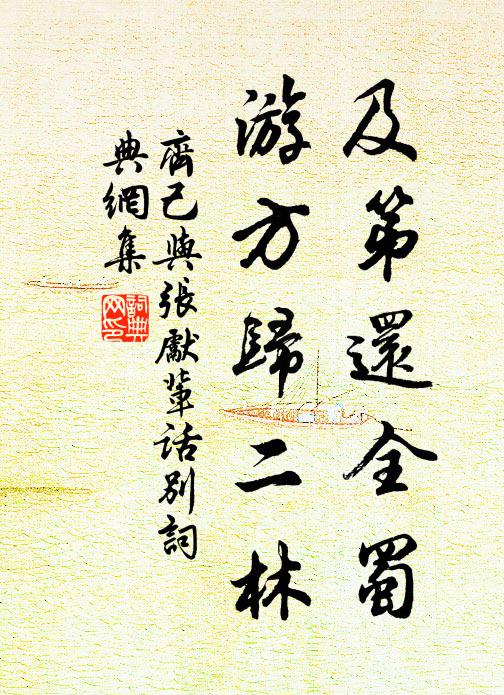 及第還全蜀
游方歸二林
齊己與張獻輩話別詞
典網集
詞典
网印